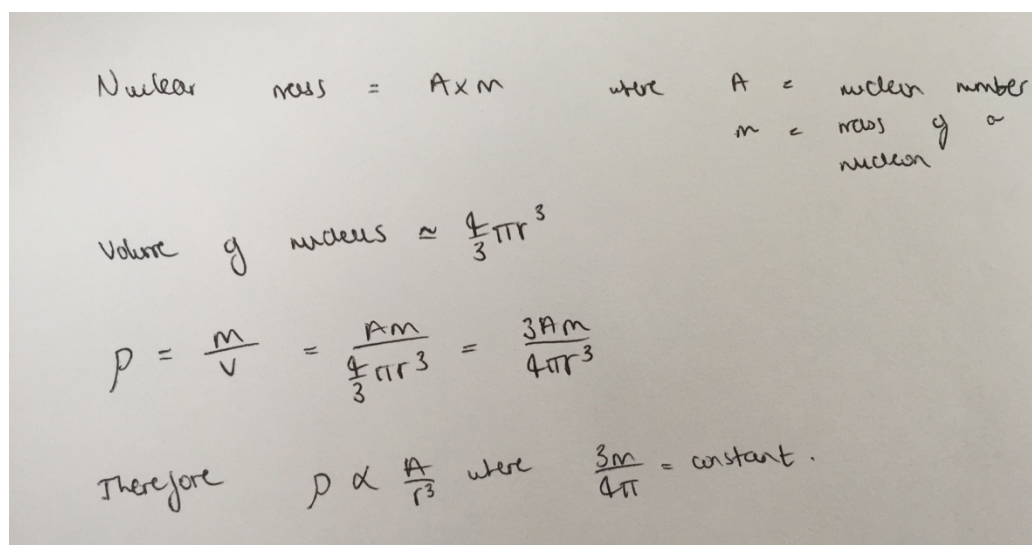 Nuclear mass = A x m where A = nucleon number
m = mass of a
nucleon
Volume of nucleus ≃ 4/3 πr³
ρ = m/V = Am/(4/3 πr³) = 3Am/4πr³
Therefore ρ ∝ A/r³ where 3m/4π = constant.